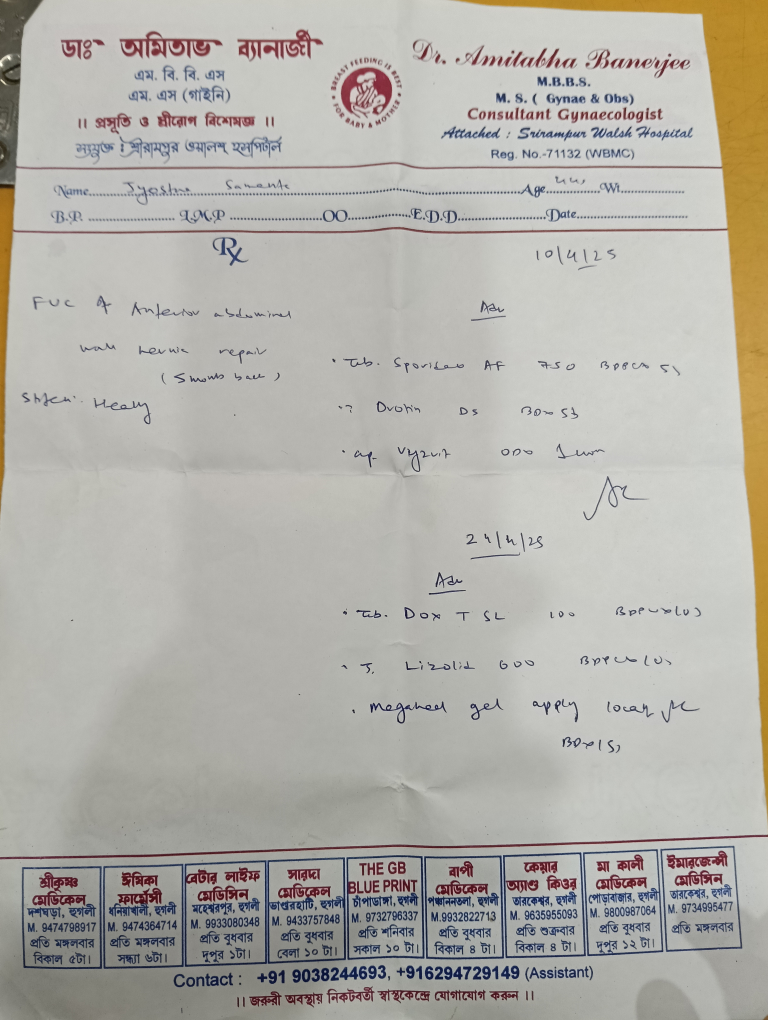 ডাঃ অমিতাভ ব্যানার্জী
এম. বি. বি. এস
এম. এস (গাইনি)
।। প্রসূতি ও স্ত্রীরোগ বিশেষজ্ঞ ।।
সংযুক্ত : শ্রীরামপুর ওয়ালশ্ হসপিটাল
BREAST FEEDING IS BEST FOR BABY & MOTHER
Dr. Amitabha Banerjee
M.B.B.S.
M. S. ( Gynae & Obs)
Consultant Gynaecologist
Attached : Srirampur Walsh Hospital
Reg. No.-71132 (WBMC)
Name Samanta Age 44, Wt
B.P. L.M.P OO E.D.D. Date
Rx
10/4/25
Adv
Anterior abdominal
wall hernia repair
(5 month back)
Healthy
Tab. AF 750
DS
24/4/25
Adv
Tab. Dox T SL 100
T. Lizolid 600
Megaheal gel apply local
শ্রীকৃষ্ণ মেডিকেল
দশঘড়া, হুগলী
M. 9474798917
প্রতি মঙ্গলবার
বিকাল ৫টা।
ঈষিকা ফার্মেসী
ধনিয়াখালী, হুগলী
M. 9474364714
প্রতি মঙ্গলবার
সন্ধ্যা ৬টা।
বেটার লাইফ মেডিসিন
মহেশ্বরপুর, হুগলী
M. 9933080348
প্রতি বুধবার
দুপুর ১টা।
সারদা মেডিকেল
ভাণ্ডারহাটি, হুগলী
M. 9433757848
প্রতি বুধবার
বেলা ১০ টা।
THE GB
BLUE PRINT
চাঁপাডাঙ্গা, হুগলী
M. 9732796337
প্রতি শনিবার
সকাল ১০ টা।
বাপী মেডিকেল
পঞ্চাননতলা, হুগলী
M.9932822713
প্রতি বুধবার
বিকাল ৪ টা।
কেয়ার অ্যান্ড কিওর
তারকেশ্বর, হুগলী
M. 9635955093
প্রতি শুক্রবার
বিকাল ৪ টা।
মা কালী মেডিকেল
পোড়াবাজার, হুগলী
M. 9800987064
প্রতি বুধবার
দুপুর ১২ টা।
ইমারজেন্সী মেডিসিন
তারকেশ্বর, হুগলী
M. 9734995477
প্রতি মঙ্গলবার
Contact : +91 9038244693, +916294729149 (Assistant)
।। জরুরী অবস্থায় নিকটবর্তী স্বাস্থ্যকেন্দ্রে যোগাযোগ করুন ।।